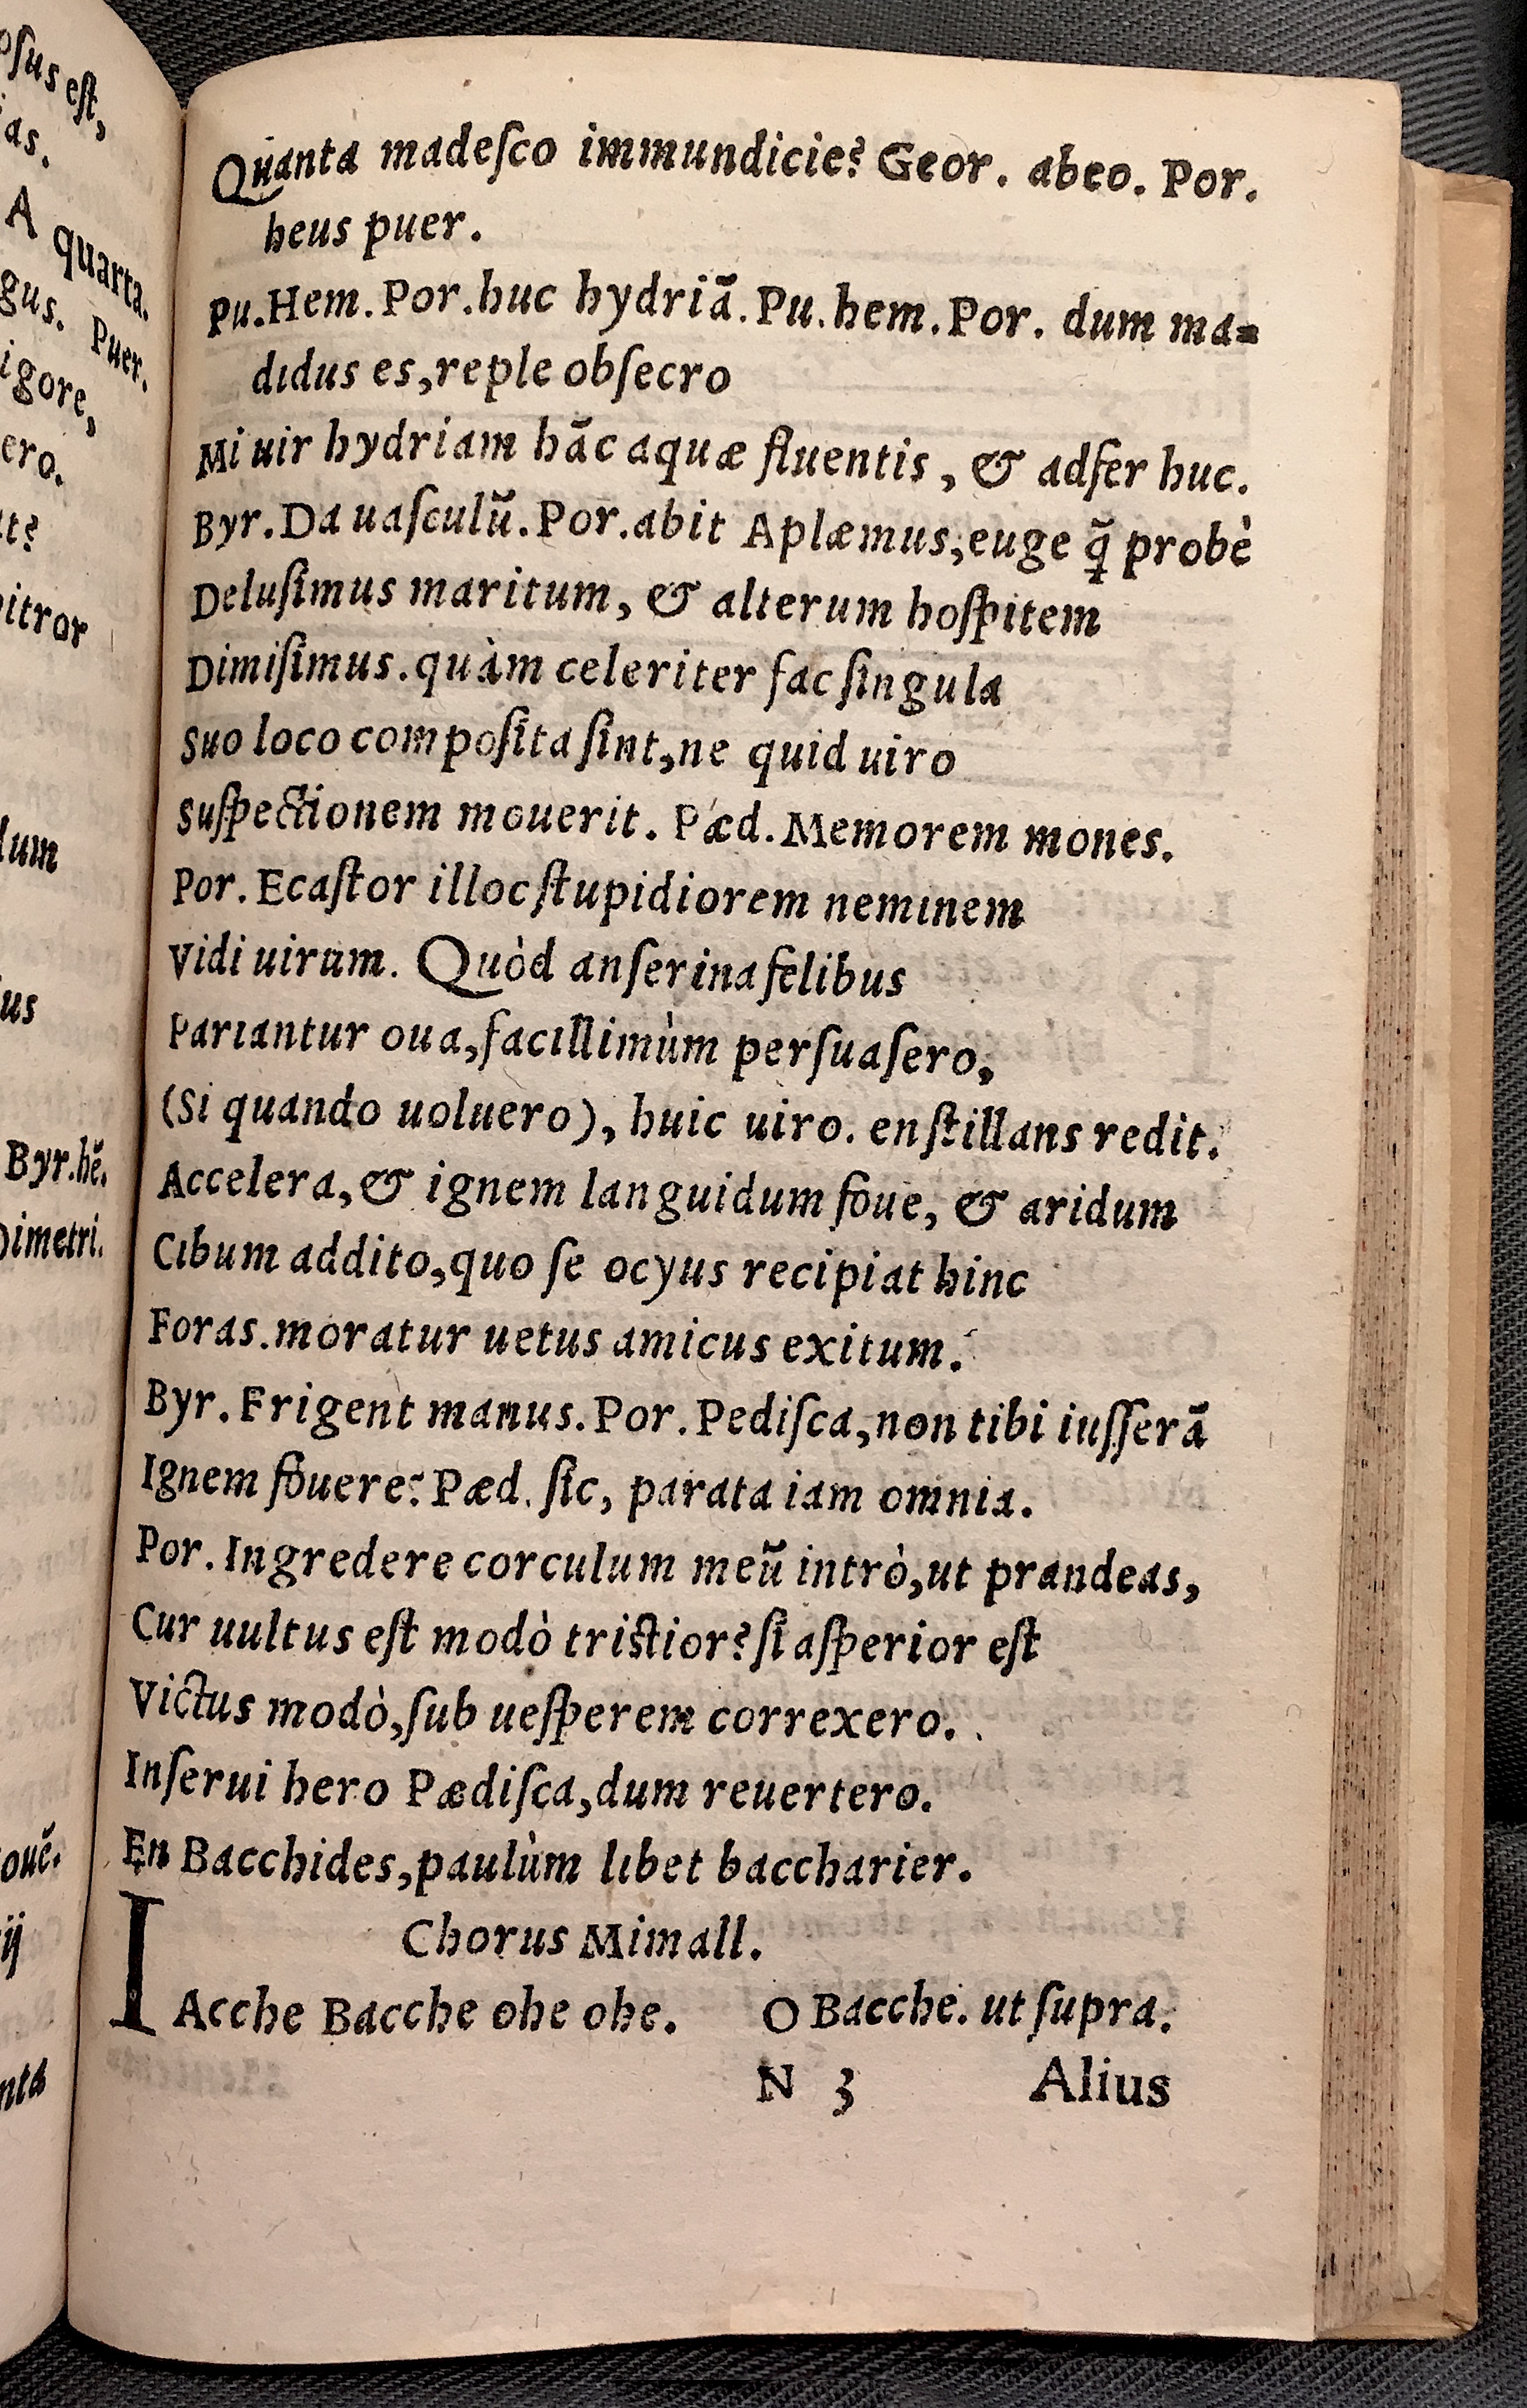 oſus eſt,
as.
A quarta.
gus. Puer.
igore,
ero.
it?
bitror
dum
us
Byr.hẽ.
Dimetri.
ouẽ.
ij
nta
Quanta madeſco immundicie? Geor. abeo. Por.
heus puer.
Pu. Hem. Por. huc hydriã. Pu. hem. Por. dum ma=
didus es, reple obſecro
Mi uir hydriam hãc aquæ fluentis, & adfer huc.
Byr. Da uaſculũ. Por. abit Aplæmus, euge q̃ probè
Deluſimus maritum, & alterum hoſpitem
Dimiſimus. quàm celeriter fac ſingula
Suo loco compoſita ſint, ne quid uiro
Suſpectionem mouerit. Pæd. Memorem mones.
Por. Ecaſtor illoc ſtupidiorem neminem
Vidi uirum. Quòd anſerina felibus
Pariantur oua, facillimùm perſuaſero,
(Si quando uoluero), huic uiro. en ſtillans redit.
Accelera, & ignem languidum foue, & aridum
Cibum addito, quo ſe ocyus recipiat hinc
Foras. moratur uetus amicus exitum.
Byr. Frigent manus. Por. Pediſca, non tibi iuſſerã
Ignem fouere? Pæd. ſic, parata iam omnia.
Por. Ingredere corculum meũ intrò, ut prandeas,
Cur uultus eſt modò triſtior? ſi aſperior eſt
Victus modò, ſub ueſperem correxero.
Inſerui hero Pædiſca, dum reuertero.
En Bacchides, paulùm libet baccharier.
Chorus Mimall.
IAcche Bacche ohe ohe. O Bacche. ut ſupra.
N 3 Alius